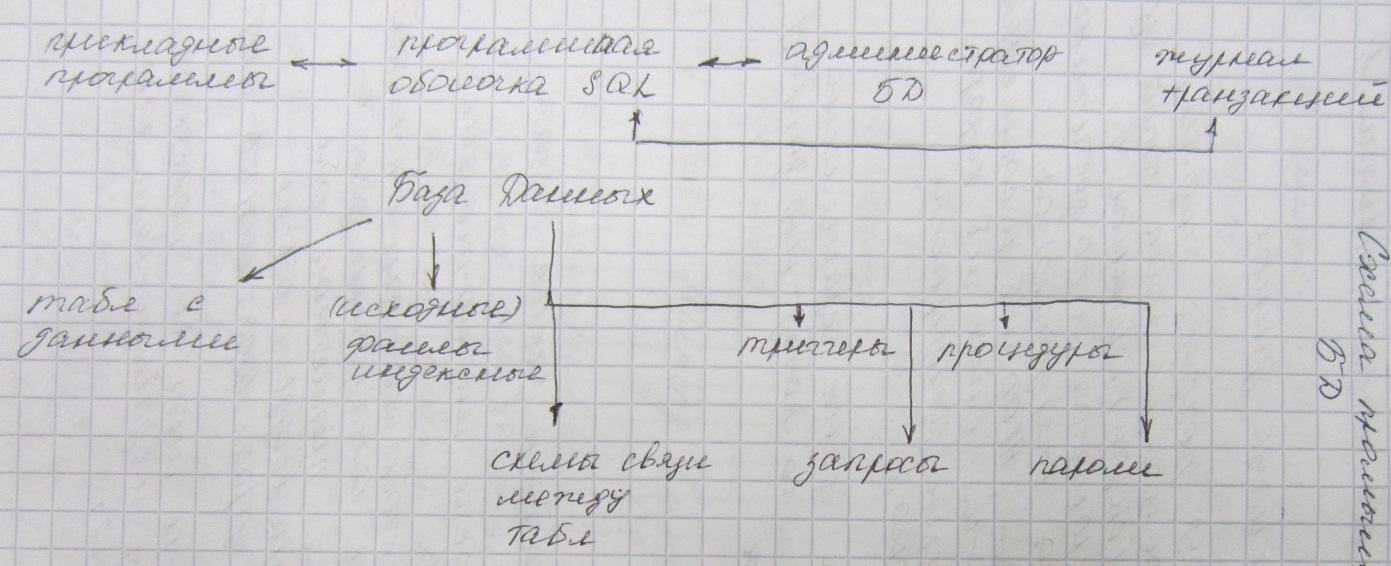 прикладные
программы
программная
оболочка SQL
администратор
БД
журнал
транзакций
База Данных
табл с
данными
(исходные)
файлы
индексные
триггеры
процедуры
схемы связи
между
табл
запросы
пароли
Схема
БД